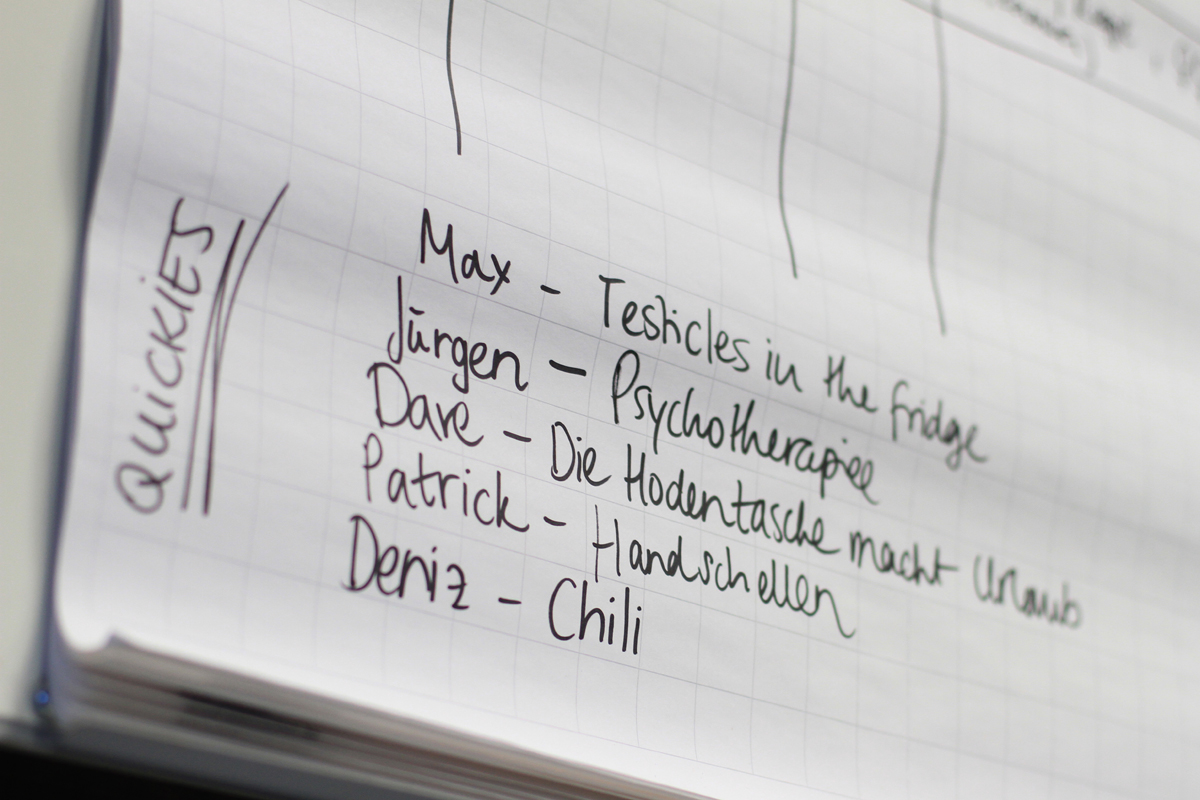 QUICKIES
Max - Testicles in the fridge
Jürgen - Psychotherapiee
Dave - Die Hodentasche macht Urlaub
Patrick - Handschellen
Deniz - Chili